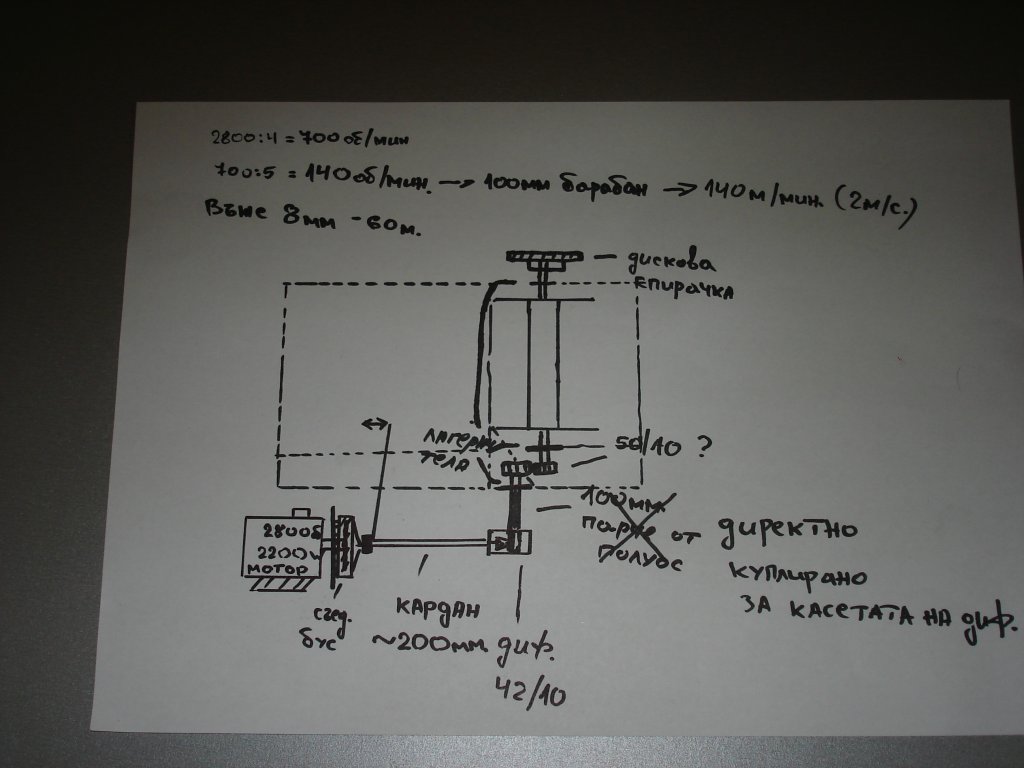 2800:4 = 700 об/мин
700:5 = 140 об/мин. → 100мм барабан → 140 м/мин. (2м/с.)
Въже 8мм - 60м.
дискова
спирачка
лагерни
тела
50/10 ?
100мм.
парче
полуос
от директно
куплирано
за касетата на диф.
2800об
2200w
мотор
съед.
бус
кардан
~200мм.
диф.
42/10